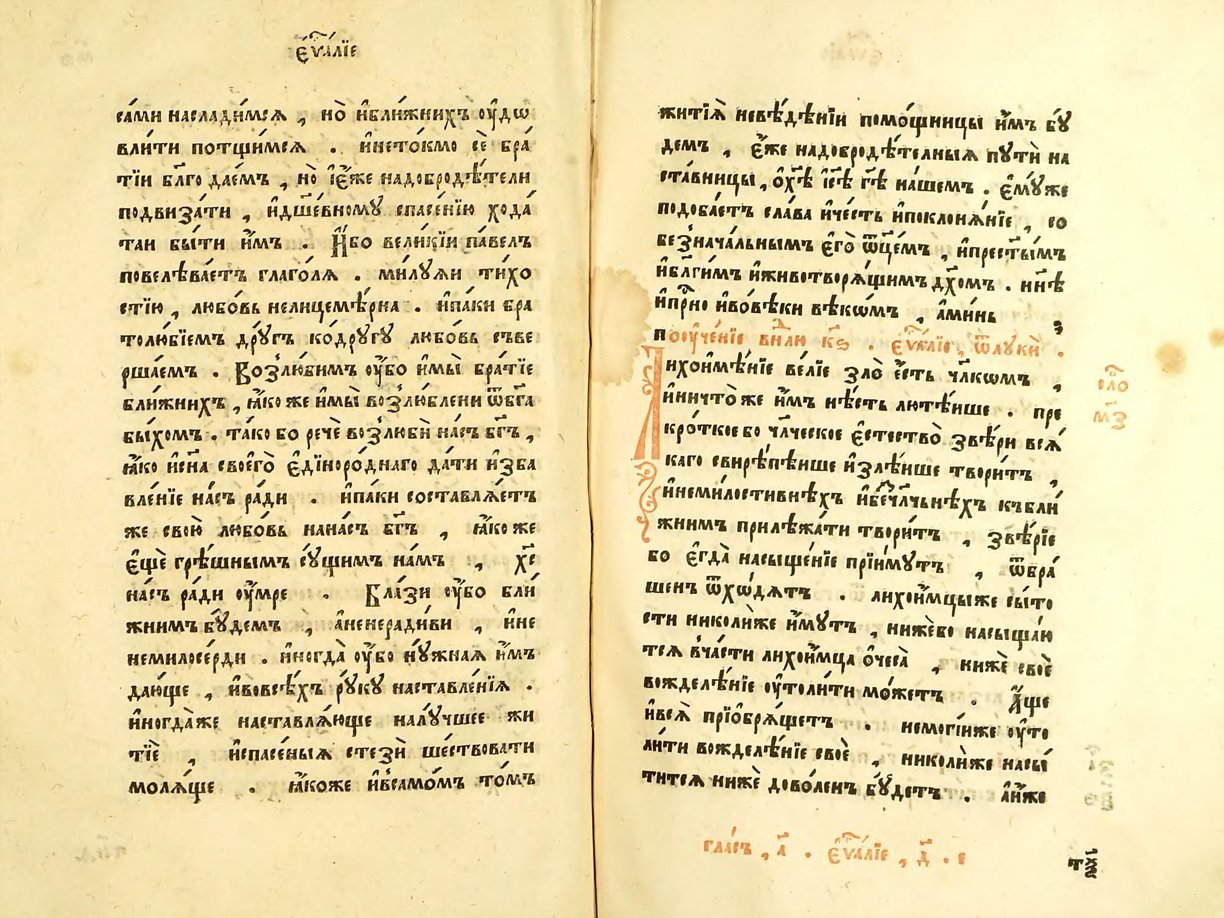 є҆ѵⷢ҇алїе
са́ми насладі́мсѧ , но̀ и҆бли́жнихъ ᲂу҆́дѡ
вли́ти потщи́мсѧ . и҆нето́кмо сѐ бра́
тїи бл҃го дае́мъ , но̀ і҆е҆́же надобродѣ́тели
подвиза́ти , и҆дш҃е́вномꙋ спасе́нїю хода́
таи бы́ти и҆̀мъ . И҆́бо вели́кїи па́велъ
повелѣва́етъ глаго́лѧ . ми́лꙋѧи ти́хо
стїю , любо́вь нелицемѣ́рна . и҆па́ки бра
толю́бїемъ дрꙋ́гъ ко́дрꙋгꙋ любо́вь съве
рша́емъ . Возлю́бимъ ᲂу҆́бо и҆мы̀ бра́тїе
бли́жнихъ , ꙗ҆́ко же и҆мы̀ возлю́блени ѿбг҃а
бы́хомъ . та́ко бо речѐ возлюбѝ на́съ бг҃ъ ,
ꙗ҆́ко и҆сн҃а своего̀ є҆диноро́днаго да́ти и҆зба
вле́нїе на́съ ра́ди . и҆па́ки составлѧ́етъ
же свою̀ любо́вь нана́съ бг҃ъ , ꙗ҆́ко же
є҆щѐ грѣ́шнымъ сꙋ́щимъ на́мъ , хс҃
на́съ ра́ди ᲂу҆́мре . Бла́зи ᲂу҆́бо бли́
жнимъ бꙋ́демъ , а҆ненеради́ви , и҆не
немилосе́рди . и҆ногда̀ ᲂу҆́бо нꙋ́жнаѧ и҆̀мъ
даю́ще , и҆вовсѣ́хъ рꙋ́кꙋ наставле́нїѧ .
и҆ногда́же наставлѧ́юще налꙋ́чшее жи
тїѐ , и҆спасе́ныѧ стезѝ ше́ствовати
молѧ́ще . ꙗ҆́коже и҆всамо́мъ то́мъ
житїѧ̀ невѣ́дѣнїи помо́щницы и҆̀мъ бꙋ́
демъ , є҆́же надобродѣ́телныѧ пꙋтѝ на
ста́вницы , ѻ҆хс҃ѣ і҆с҃ѣ гд҃ѣ на́шемъ . є҆мꙋ́же
подоба́етъ сла́ва и҆че́сть и҆поклонѧ́нїе , со
безнача́льнымъ є҆го̀ ѿц҃емъ , и҆прест҃ы́мъ
и҆бл҃ги́мъ и҆животворѧ́щимъ дх҃омъ . ны́нѣ
и҆при́сно и҆во́вѣки вѣкѡ́мъ , а҆ми́нь
поᲂуче́нїе в̾нⷣлю к҃ѕ . є҆ѵⷢ҇алїе , ѿлꙋкѝ .
Лихои҆мѣ́нїе ве́лїе зло̀ е҆́сть чл҃кѡмъ ,
и҆ничто̀ же и҆̀мъ нѣ́сть лютѣ́ише . пре
кро́ткое бо чл҃ческое є҆стество̀ звѣ́ри всѧ́
каго свирѣ́пѣише и҆злѣ́ише твори́тъ ,
и҆немилостивнѣ́хъ и҆бечл҃чьнѣ́хъ къбли́
жнимъ прилѣжа́ти твори́тъ , звѣ́рїе
бо є҆гда̀ насыще́нїе прїи́мꙋтъ , ѿбра́
шенъ ѿхѡ́дѧтъ . лихои́мцыже сы́то
сти николи́же и҆́мꙋтъ , ни́жебо насыща́ю
тсѧ в̾ча́сти лихои́мца ѻ҆чеса̀ , нижѐ своѐ
вожделѣ́нїе ᲂу҆толи́ти мо́жетъ . А҆́ще
и҆всѧ̀ прїѻбрѧ́щетъ . немогі́иже ᲂу҆то
ли́ти вожделѣ́нїе своѐ , николи́же насы́
титсѧ нижѐ дово́ленъ бꙋ́детъ . а҆́иже
сло
мз҃
гла́съ , а҃ . є҆ѵⷢ҇алїе , д҃ . е